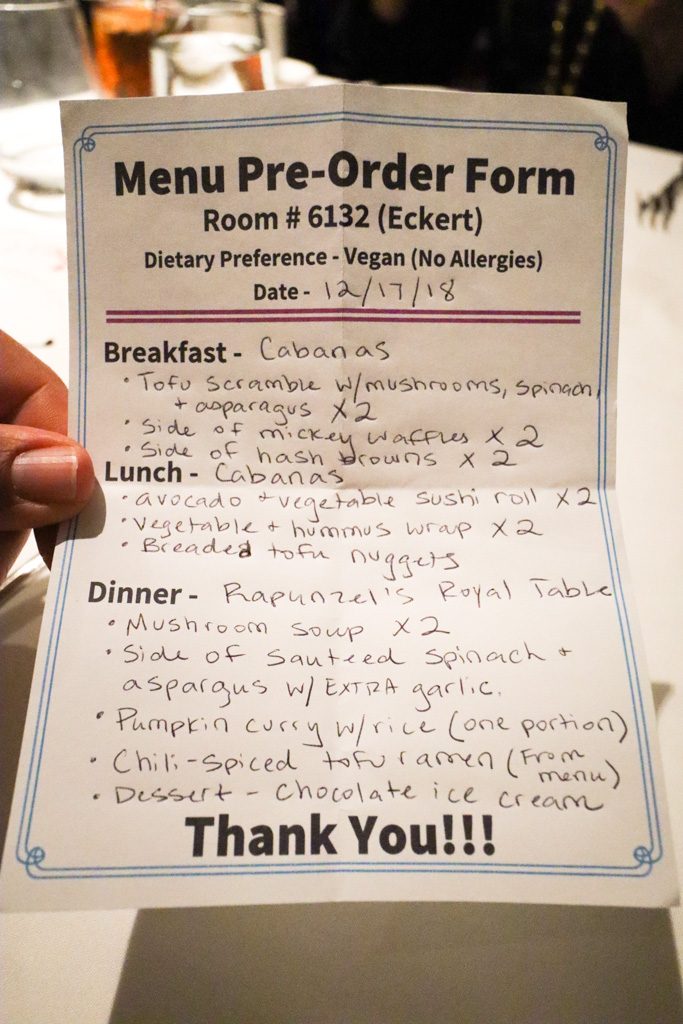 Menu Pre-Order Form
Room # 6132 (Eckert)
Dietary Preference - Vegan (No Allergies)
Date - 12/17/18
Breakfast - Cabanas
• Tofu scramble w/mushrooms, spinach,
+ asparagus x2
• Side of mickey waffles x 2
• Side of hash browns x 2
Lunch - Cabanas
• avocado + vegetable sushi roll x2
• Vegetable + hummus wrap x2
• Breaded tofu nuggets
Dinner - Rapunzel's Royal Table
• Mushroom soup x2
• Side of sauteed spinach +
asparagus w/ EXTRA garlic.
• Pumpkin curry w/rice (one portion)
• Chili-spiced tofu ramen (from
menu)
• Dessert - Chocolate ice cream
Thank You!!!